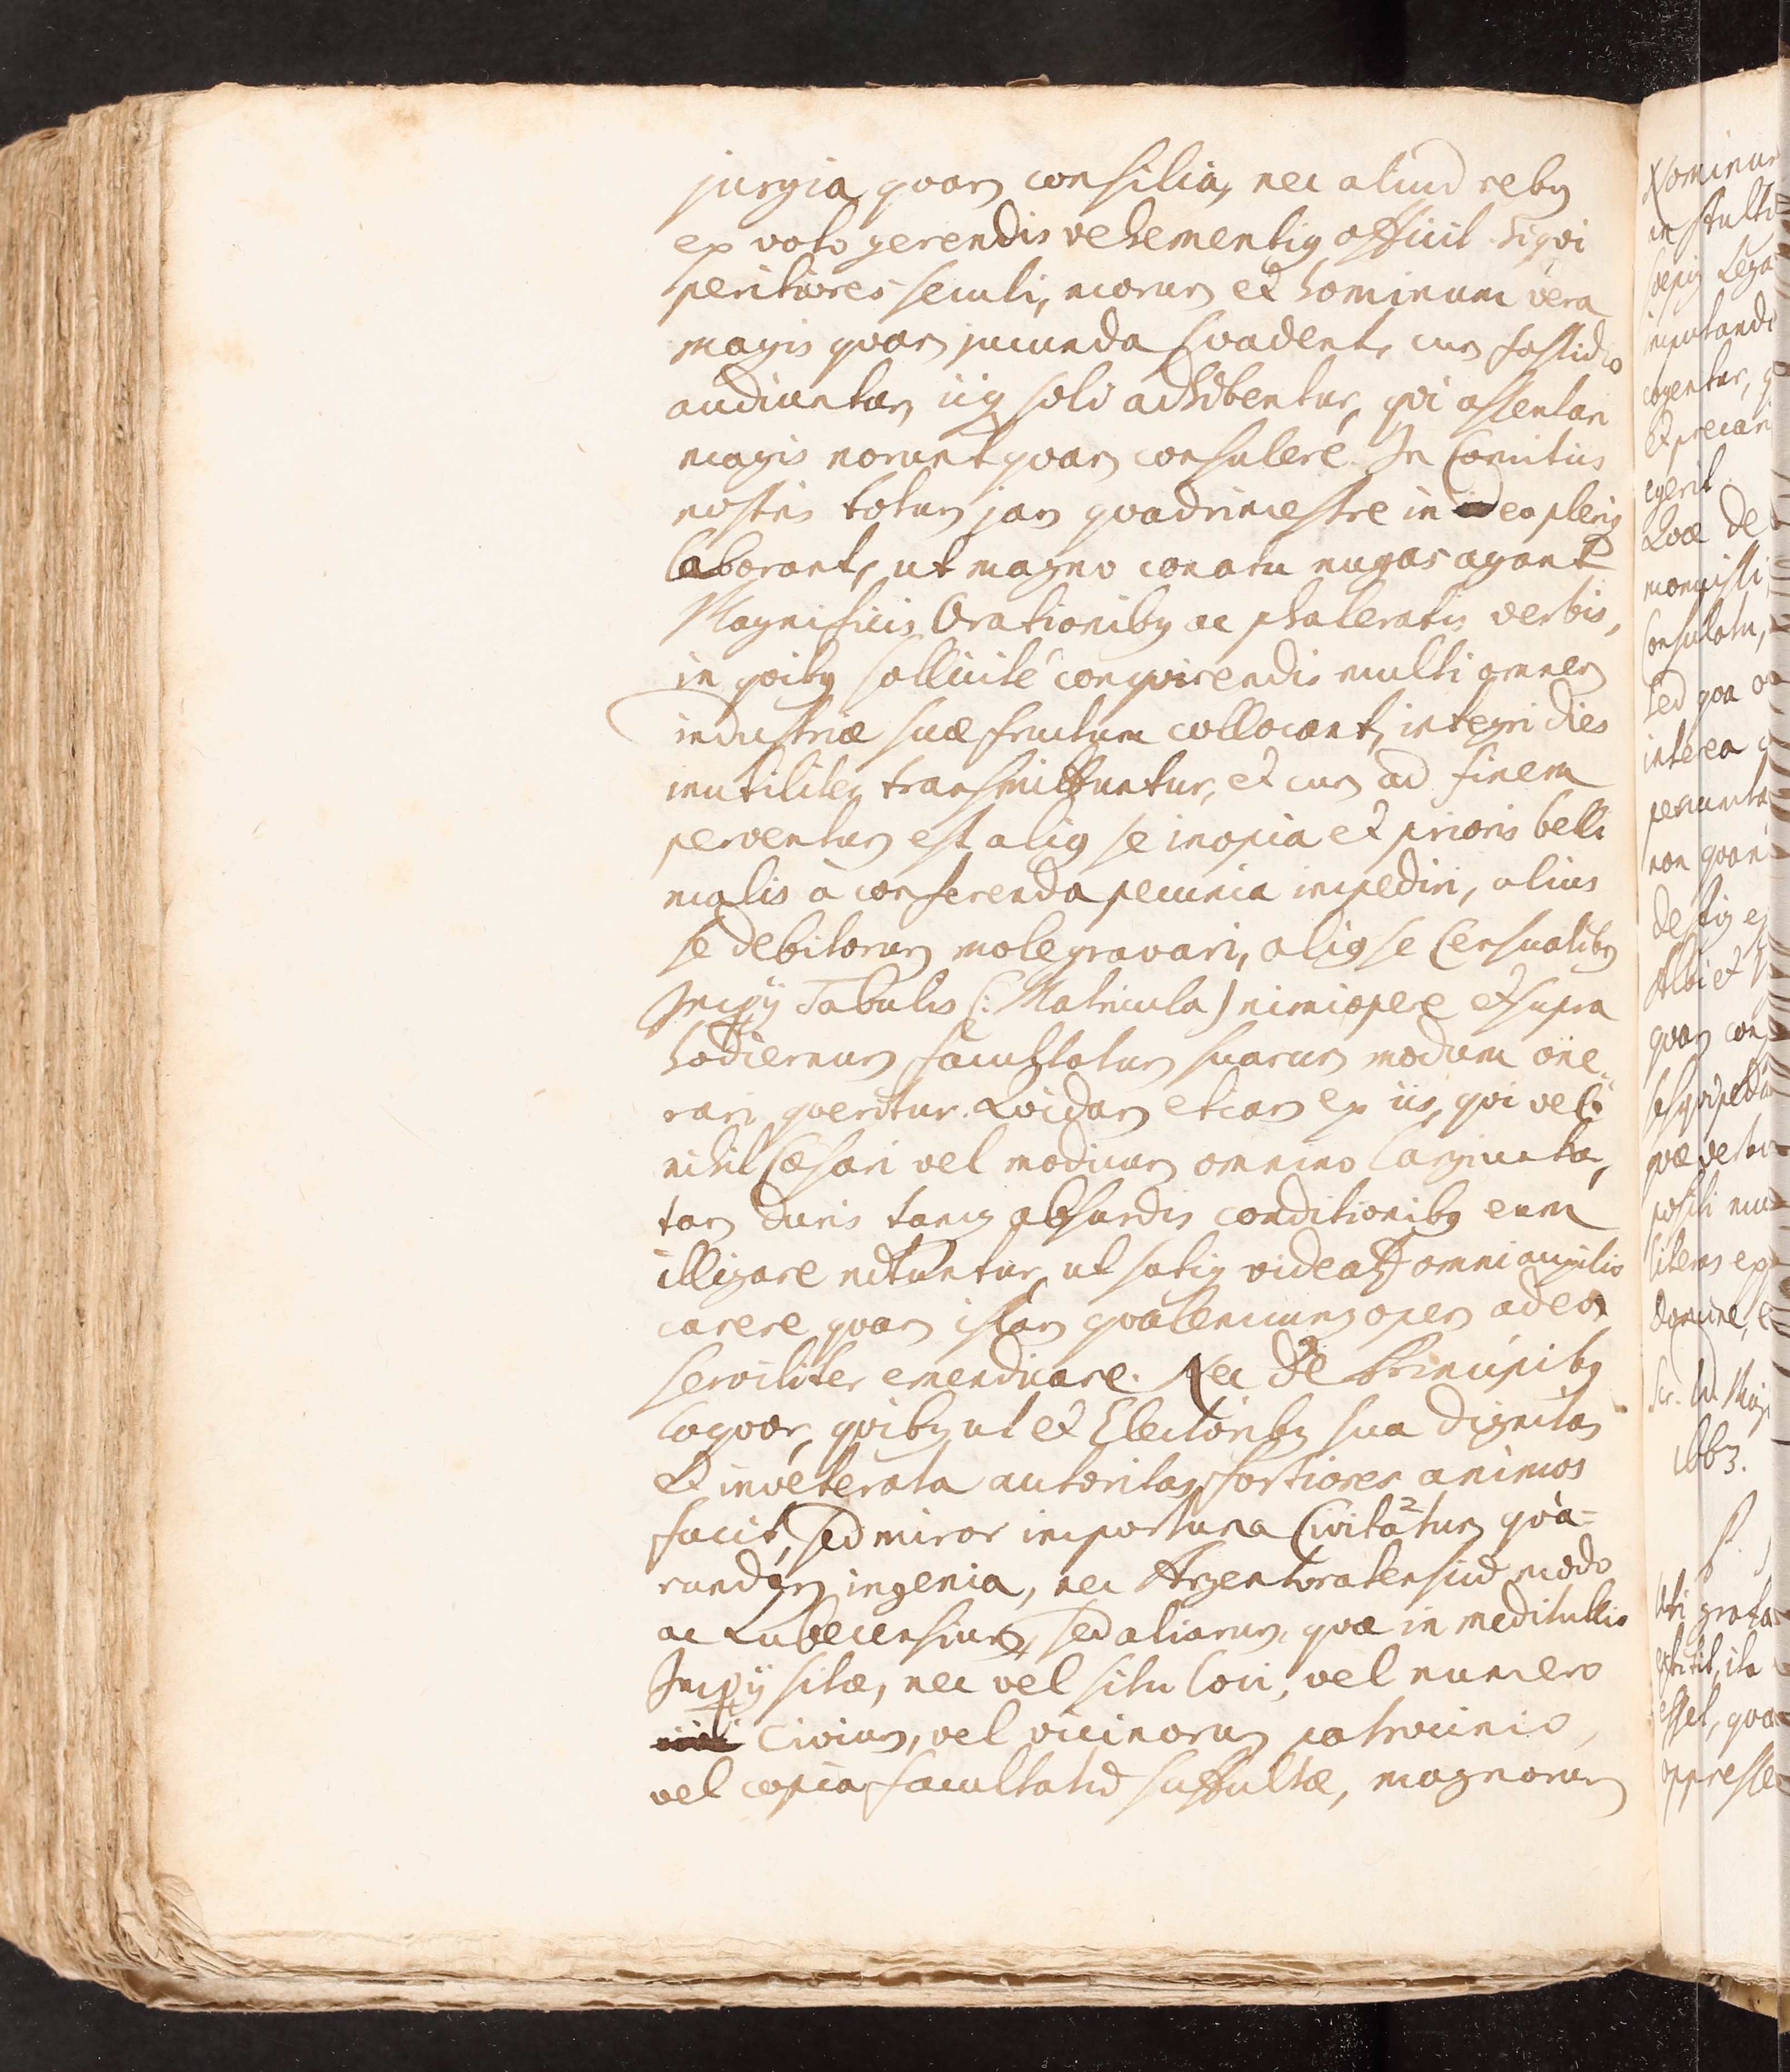 jurgia quam consilia, nec aliud rebus
ex voto gerendis vehementius officit. Siqvi
peritiores seculi, morum et hominum vera
magis quam jucunda svadent, cum fastidio
audiuntur, iiq soli adhibentur, qvi assentari
magis norunt quam consulere. In Comitiis
nostris totum jam quadrimestre in eo pleriq
laborant, ut magno conatu nugas agant
Magnificis Orationibus ac phaleratis verbis,
in qvibus sollicite conqvirendis multi omnem
industriæ suæ fructum collocant, integri dies
inutiliter transmittuntur, et cum ad finem
perventum est alius se inopia et prioris belli
malis à conferenda pecunia impediri, alius
se debitorum mole gravari, alius se Censualibus
Imperij Tabulis (: Matricula) nimiopere et supra
hodiernum facultatum suarum modum one-
rari queritur. Qvidam etiam ex iis, qvi vel
nihil Cæsari vel modicum omnino largiuntur,
tam duris tamq absurdis conditionibus eum
illigare nituntur, ut satius videatur omni auxilio
carere quam istam qvalemcunq opem adeo
serviliter emendicare. Nec de Principibus
loqvor, qvibus ut et Electoribus sua dignitas
et inveterata autoritas fortiores animos
facit, sed miror importuna Civitatum qva-
rundam ingenia, nec Argentoratensium modo
ac Lubecensium, sed aliarum, quæ in meditullio
Imperij sitæ, nec vel situ loci, vel numero
Civium, vel vicinorum patrocinio,
vel copia facultatum suffultæ, magnorum